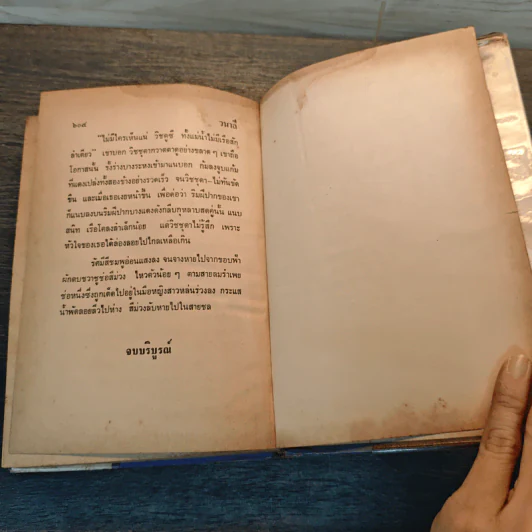 ๒๐๘ วนาลี
"ไม่มีใครเห็นแน่ วิชชุชี ทั้งแม่น้ำไม่มีเรือสัก
ลำเดียว" เขาบอก วิชชุดากราดตาดูอย่างขลาด ๆ เขาถือ
โอกาสนั้น รั้งร่างบางระหงเข้ามาแนบอก ก้มลงจูบแก้ม
ที่แดงเปล่งทั้งสองข้างอย่างรวดเร็ว จนวิชชุดา-ไม่ทันขัด
ขืน และเมื่อเธอเงยหน้าขึ้น เพื่อต่อว่า ริมฝีปากของเขา
ก็แนบลงบนริมฝีปากบางแดงดังกลีบกุหลาบสดคู่นั้น แนบ
สนิท เรือโคลงลำเล็กน้อย แต่วิชชุดาไม่รู้สึก เพราะ
หัวใจของเธอได้ล่องลอยไปไกลเหลือเกิน
รัศมีสีชมพูอ่อนแสงลง จนจางหายไปจากขอบฟ้า
ผักตบชวาชูช่อสีม่วง ไหวตัวน้อย ๆ ตามสายลมรำเพย
ช่อหนึ่งซึ่งถูกเด็ดไปอยู่ในมือหญิงสาวหล่นร่วงลง กระแส
น้ำพัดลอยลิ่วไปห่าง สีม่วงลับหายไปในสายชล
จบบริบูรณ์